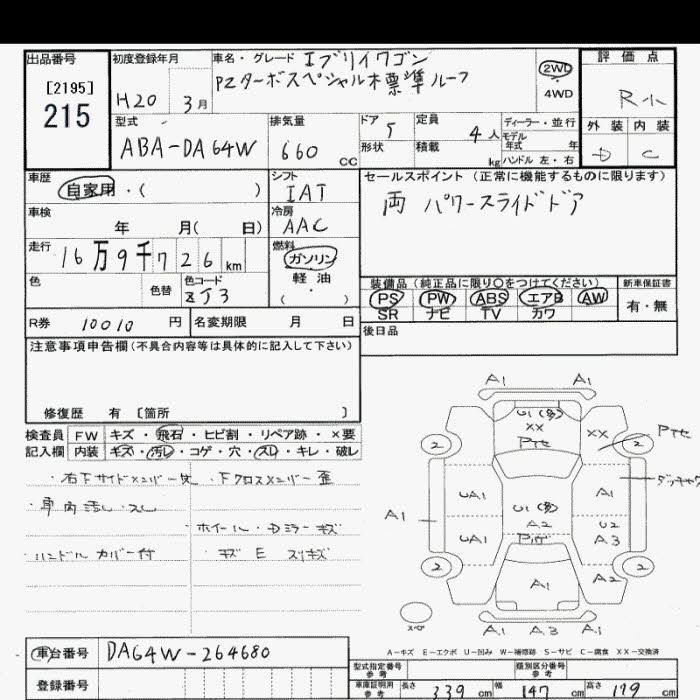 出品番号
[2195]
215
初度登録年月
H20 3月
車名・グレード エブリイワゴン
PZターボスペシャル 標準ルーフ
2WD
4WD
評価点
R小
外装 内装
D C
型式
ABA-DA64W
排気量
660 CC
ドア 5
形状
定員 4人
積載 kg
ディーラー・並行
モデル
年式 年
ハンドル 左・右
車歴
自家用・( )
シフト
IAT
セールスポイント(正常に機能するものに限ります)
両 パワースライドドア
車検
年 月( 日)
冷房
AAC
走行
16万9千726km
燃料
ガソリン
軽油
( ・ )
色
色替
色コード
ZJ3
装備品(純正品に限り○をつけてください)
PS PW ABS エアB AW
SR ナビ TV カワ
新車保証書
有・無
R券 10010 円
名変期限 月 日
後日品
注意事項申告欄(不具合内容等は具体的に記入して下さい)
修復歴 有 [箇所 ]
検査員 FW キズ・飛石・ヒビ割・リペア跡・×要
記入欄 内装 キズ・汚レ・コゲ・穴・スレ・キレ・破レ
・右下サイドメンバー ・下クロスメンバー歪
・車内汚レ・スレ
・ホイール・Dミラーキズ
ハンドルカバー付
・キズ E スリキズ
A1 A1
U1(多)
XX
XX
2 2
UA1 A1
U1(多)
A1
A2
U2
UA1 A3
2 2
A1 A2
A1 A3 A1
A-キズ E-エクボ U-凹み W-補修跡 S-サビ C-腐食 XX-交換済
車台番号 DA64W-264680
登録番号
型式指定番号
参考
類別区分番号
参考
車庫証明用
参考
長さ 339 cm 幅 147 cm 高さ 179 cm